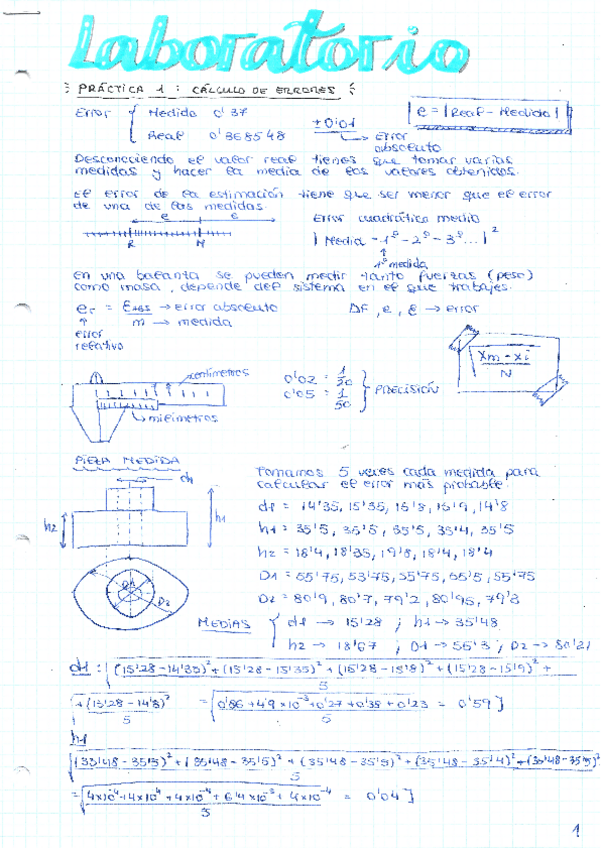 Laboratorio
PRÁCTICA 1 : CÁLCULO DE ERRORES
Error { Medida 0'37
Real 0'368548
±0'01 → Error absoluto
e = |Real - Medida|
Desconociendo el valor real tienes que tomar varias
medidas y hacer la media de los valores obtenidos.
El error de la estimación tiene que ser menor que el error
de una de las medidas.
e e
R M
Error cuadrático medio
| Media - 1º - 2º - 3º ... |²
↑
1ª medida
En una balanza se pueden medir tanto fuerzas (peso)
como masa, depende del sistema en el que trabajes.
er = EABS → error absoluto
m → medida
↑
error
relativo
ΔF, e, ε → error
Xm - xi
N
centímetros
milímetros
0'02 = 1/20
0'05 = 1/50
} PRECISIÓN
PIEZA MEDIDA
d1
h2
h1
D1
D2
Tomamos 5 veces cada medida para
calcular el error más probable.
d1 = 14'35, 15'35, 15'8, 15'9, 14'8
h1 = 35'5, 35'5, 35'5, 35'4, 35'5
h2 = 18'4, 18'35, 19'8, 18'4, 18'4
D1 = 55'75, 53'75, 55'75, 55'5, 55'75
D2 = 80'9, 80'7, 79'2, 80'95, 79'3
MEDIAS { d1 → 15'28 ; h1 → 35'48
h2 → 18'67 ; D1 → 55'3 ; D2 → 80'21
d1 : √ (15'28 - 14'35)² + (15'28 - 15'35)² + (15'28 - 15'8)² + (15'28 - 15'9)² +
5
+ (15'28 - 14'8)²
5
= √ 0'86 + 4'9×10⁻³ + 0'27 + 0'38 + 0'23 = 0'59
5
h1
√ (35'48 - 35'5)² + (35'48 - 35'5)² + (35'48 - 35'5)² + (35'48 - 35'4)² + (35'48 - 35'5)²
5
= √ 4×10⁻⁴ + 4×10⁻⁴ + 4×10⁻⁴ + 6'4×10⁻³ + 4×10⁻⁴ = 0'04
5
1